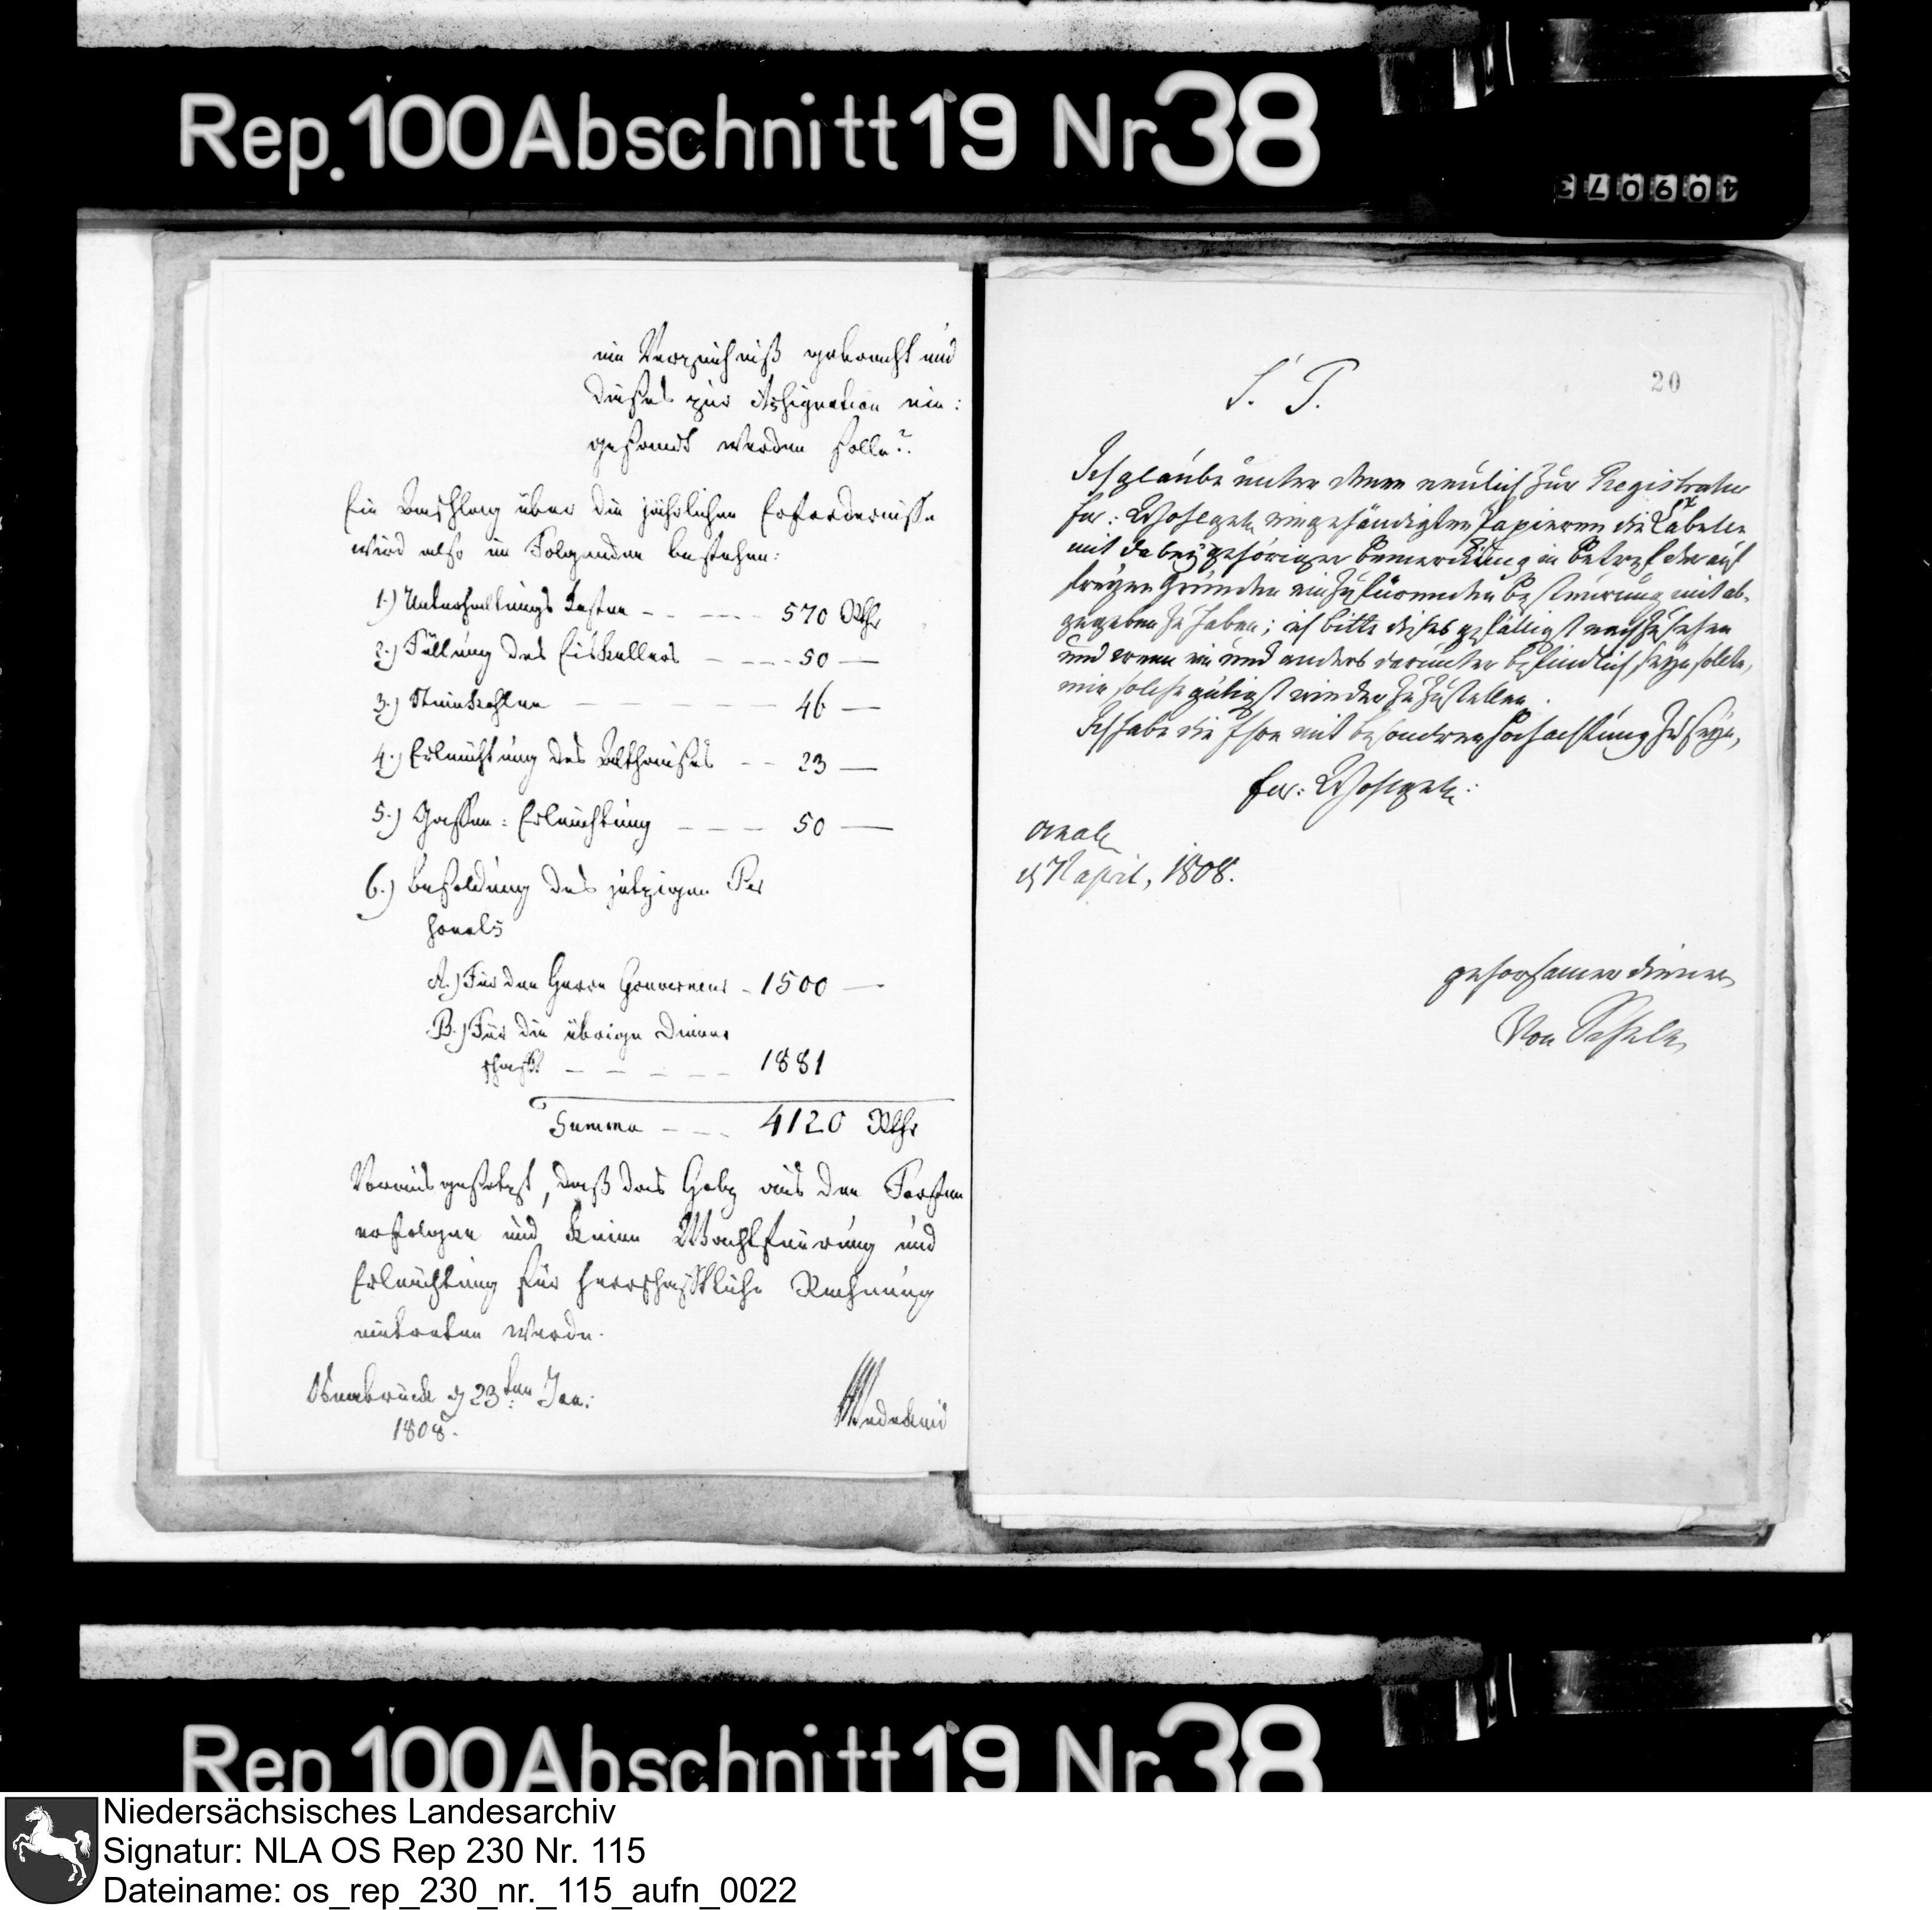 Rep. 100 Abschnitt 19 Nr 38
409073
ein Verzeichniß gebracht und
dieses zur Assignation ein:
gesandt werden solle?.
Ein Anschlag über die jährlichen Erfordernisse
wird also im Folgenden bestehen:
1.) Unterhaltungs Kosten - - - - - 570 Rthr
2.) Füllung des Eiskellers - - - - 50 —
3.) Steinkohlen - - - - - - 46 —
4.) Erleuchtung des - - 23 —
5.) Gassen: Erleuchtung - - - - 50 —
6.) Besoldung des jetzigen Per
sonals
A.) Für den Herrn Gouverneur - 1500 —
B.) Für die übrige Diener
schaft - - - - - 1881
Summa - - - - 4120 Rthr
Vorausgesetzt, daß das Holz aus den Forsten
erfolgen und keine Wachtfeurung und
Erleuchtung für herrschaftliche Rechnung
eintreten werde.
Osnabrück d 23ten Jan:
1808.
20
S. T.
Ich glaube unter denen neulich zur Registratur
Ew: Wohlgeb eingehändigten Papieren die Tabelle
mit dabey gehöriger Bemerckung in Betref der auf
freyen Gründen einzuführenden Besteurung mit ab-
gegeben zu haben; ich bitte dieses gefälligst nachzusehen
und wenn ein und anders darunter befindlich seyn sollte,
mir solche gütigst wieder zuzustellen.
Ich habe die Ehre mit besondrer Hochachtung zu seyn,
Ew: Wohlgeb:
April, 1808.
gehorsamer diener
Von
Rep 100 Abschnitt 19 Nr 38
Niedersächsisches Landesarchiv
Signatur: NLA OS Rep 230 Nr. 115
Dateiname: os_rep_230_nr._115_aufn_0022